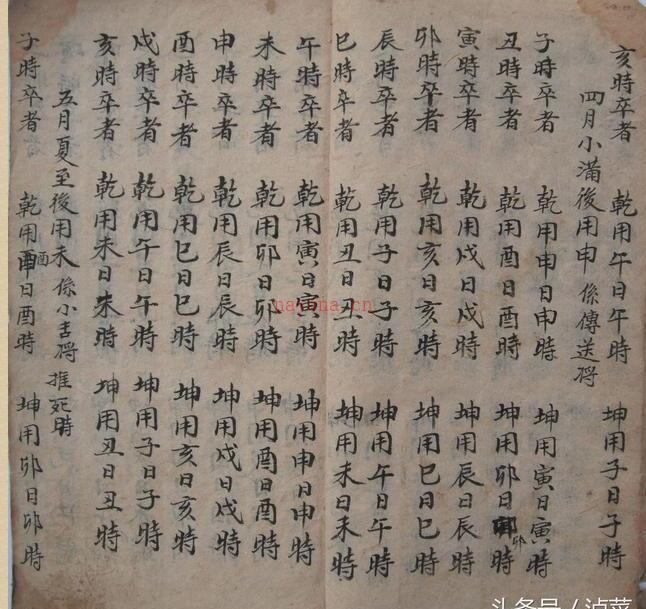 亥時卒者 乾用午日午時 坤用子日子時
四月小滿後用申 係傳送將
子時卒者 乾用申日申時 坤用寅日寅時
丑時卒者 乾用酉日酉時 坤用卯日卯時
寅時卒者 乾用戌日戌時 坤用辰日辰時
卯時卒者 乾用亥日亥時 坤用巳日巳時
辰時卒者 乾用子日子時 坤用午日午時
巳時卒者 乾用丑日丑時 坤用未日未時
午時卒者 乾用寅日寅時 坤用申日申時
未時卒者 乾用卯日卯時 坤用酉日酉時
申時卒者 乾用辰日辰時 坤用戌日戌時
酉時卒者 乾用巳日巳時 坤用亥日亥時
戌時卒者 乾用午日午時 坤用子日子時
亥時卒者 乾用未日未時 坤用丑日丑時
五月夏至後用未 係小吉將 推死時
子時卒者 乾用酉日酉時 坤用卯日卯時
头条号/泸菜